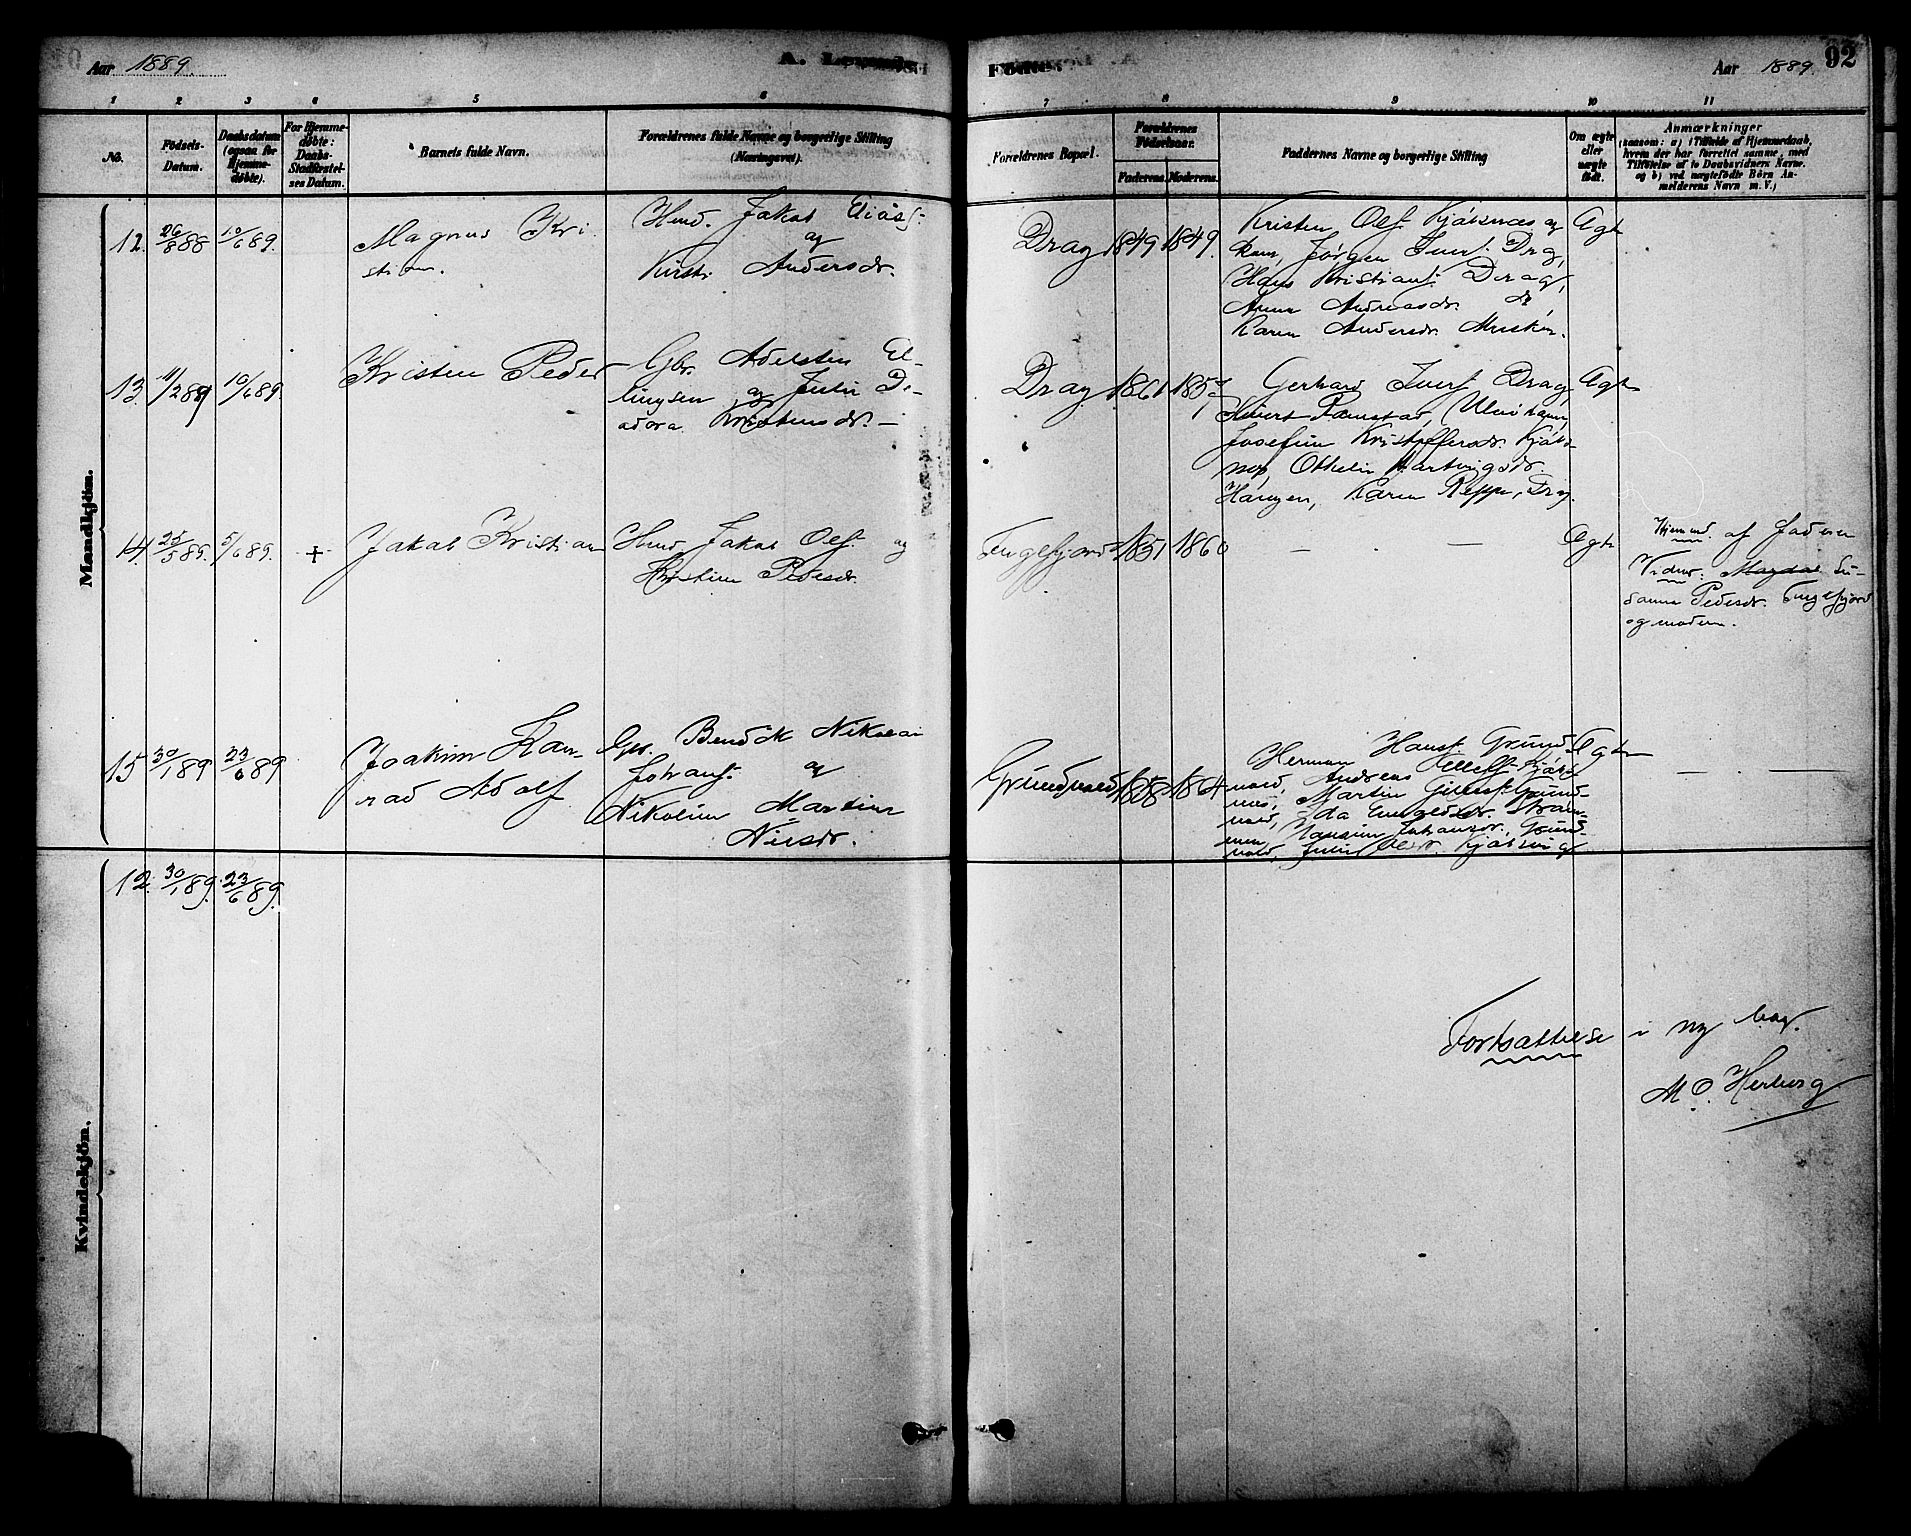 Aar 1889.
A. Levende
Fødte.
Aar 1889.
92
1 2 3 4 5 6 7 8 9 10 11
No.
Födsels-
Datum.
Daabsdatum
(ogsaa for
Hjemme-
döbte).
For Hjemme-
döbte:
Daabs-
Stadfæstel-
ses Datum.
Barnets fulde Navn.
Forældrenes fulde Navne og borgerlige Stilling
(Næringsvei).
Forældrenes Bopæl.
Forældrenes
Födselsaar.
Faderens. Moderens.
Faddernes Navne og borgerlige Stilling
Om ægte
eller
uægte
födt.
Anmærkninger
(saasom: a) i Tilfælde af Hjemmedaab,
hvem der har forrettet samme, med
Tilföielse af to Daabsvidners Navne.
og b) ved uægtefödte Börn An-
melderens Navn m. V.)
Mandkjön.
12. 26/8 88 10/6 89.
Magnus Kri
stian.
Hmd. Jakob Eliass.
og
Kirsti Andersdr.
Drag 1849 1849.
Kristen Ols. Kjöksnæs og
kone, Jørgen Ivers. Drag,
Hans Kristians. Drag,
Anna Andreasdr. do
Karen Andersdr. Musken.
Ægte
13. 11/2 89 10/6 89.
Kristen Peder
Gbr. Adelsten El-
lingsen og Julie De-
adora Kristensdr.
Drag 1861
Gerhard Iners. Drag,
Josefine Kristoffersdr. Kjöks-
næs, Othelie Hartvigsdr.
Karen Reppe, Drag.
Ægte
14. 25/5 89. 5/6 89. +
Jakob Kristian
Hmd Jakob Ols. og
Kristine Pedersdr.
Tengelfjord 1851 1860
— . —
Ægte
Hjemmed. af faderen
Vidner: Magdal Su-
sanna Pedersdr. Tengelfjord
og moderen.
15 30/1 89 23/6 89
Joakim Kon-
rad Adolf
Gbr. Bendik Nikolai
Johans. og
Nikoline Martine
Nilsdr.
Grundvald 1858 1864
Herman Hans. Grund-
vald, Andreas Ellefs. Kjöks-
næs, Martin Grund-
vald, Ida Strøm-
men, Hansine Johansdr., Grund-
vald, Julie Kjöksnæs
Ægte
— —
Kvindekjön.
12. 30/1 89. 23/6 89.
Fortsættelse i ny bog.
M. O. Herberg